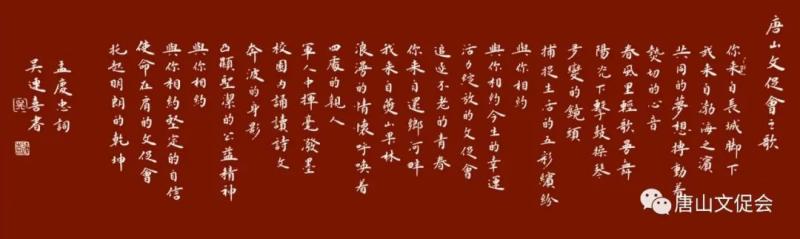 唐山文促會之歌
你来自長城脚下
我来自渤海之濱
共同的夢想搏動着
熱切的心音
春風里輕歌曼舞
陽光下擊鼓操琴
多變的鏡頭
捕捉生活的五彩繽紛
與你相約
與你相約今生的幸運
活力綻放的文促會
追逐不老的青春
你来自還鄉河畔
我来自山果林
浪漫的情懷呼唤着
四處的親人
軍人中揮毫潑墨
校園内誦讀詩文
奔波的身影
凸顯聖潔的公益精神
與你相約
與你相約堅定的自信
使命在肩的文促會
托起明朗的乾坤
孟慶忠詞
吴連喜書
唐山文促会